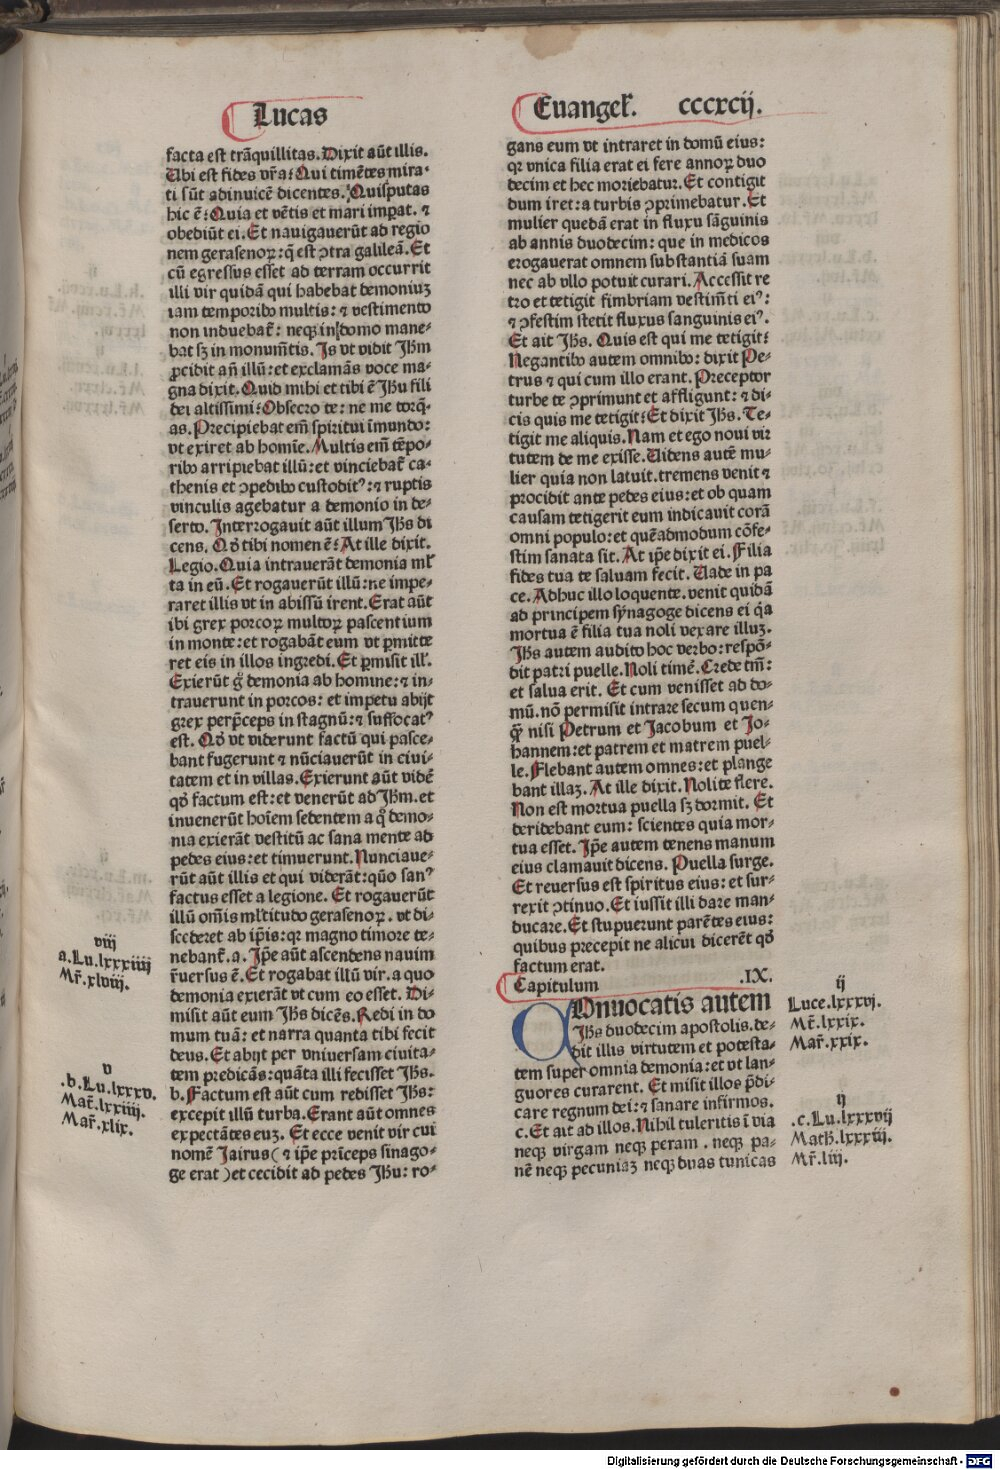 Lucas
Euangel̃. cccxcij.
facta est trãquillitas. Dixit aũt illis.
Ubi est fides vr̃a: Qui timẽtes mira-
ti sũt adinuicẽ dicentes. Quisputas
hic ẽ: Quia et vẽtis et mari imꝑat. ⁊
obediũt ei. Et nauigauerũt ad regio
nem gerasenoꝝ: q̃ est ꝯtra galileã. Et
cũ egressus esset ad terram occurrit
illi vir quidã qui habebat demoniuꝫ
iam temporibꝰ multis: ⁊ vestimento
non induebat̃: neqꝫ in domo mane-
bat sꝫ in monum̃tis. Is vt vidit Jhm̃
ꝓcidit añ illũ: et exclamãs voce ma-
gna dixit. Quid mihi et tibi ẽ Jhu fili
dei altissimi: Obsecro te: ne me torq̃-
as. Precipiebat em̃ spiritui ĩmundo:
vt exiret ab homĩe. Multis em̃ tẽpo-
ribꝰ arripiebat illũ: et vinciebat̃ ca-
thenis et ꝯpedibꝰ custoditꝰ: ⁊ ruptis
vinculis agebatur a demonio in de-
serto. Interrogauit aũt illum Jhs̃ di
cens. Qđ tibi nomen ẽ: At ille dixit.
Legio. Quia intrauerãt demonia ml̃
ta in eũ. Et rogauerũt illũ: ne impe-
raret illis vt in abissũ irent. Erat aũt
ibi grex porcoꝝ multoꝝ pascentium
in monte: et rogabãt eum vt ꝑmitte
ret eis in illos ingredi. Et ꝑmisit ill̃.
Exierũt g̃ demonia ab homine: ⁊ in-
trauerunt in porcos: et impetu abijt
grex perp̃ceps in stagnũ: ⁊ suffocatꝰ
est. Qđ vt viderunt factũ qui pasce-
bant fugerunt ⁊ nũciauerũt in ciui-
tatem et in villas. Exierunt aũt vidẽ
qđ factum est: et venerũt ad Jhm̃. et
inuenerũt hoĩem sedentem a q̃ demo-
nia exierãt vestitũ ac sana mente ad
pedes eius: et timuerunt. Nunciaue-
rũt aũt illis et qui viderãt: quõ sanꝰ
factus esset a legione. Et rogauerũt
illũ om̃is ml̃titudo gerasenoꝝ. vt di-
scederet ab ip̃is: qꝛ magno timore te-
nebant̃. a. Ip̃e aũt ascendens nauim
r̃uersus ẽ. Et rogabat illũ vir. a quo
demonia exierãt vt cum eo esset. Di-
misit aũt eum Jhs̃ dicẽs. Redi in do
mum tuã: et narra quanta tibi fecit
deus. Et abijt per vniuersam ciuita-
tem predicãs: quãta illi fecisset Jhs̃.
b. Factum est aũt cum redisset Jhs̃:
excepit illũ turba. Erant aũt omnes
expectãtes euꝫ. Et ecce venit vir cui
nomẽ Jairus (⁊ ip̃e prĩceps sinago-
ge erat) et cecidit ad pedes Jhu: ro-
viij
a. Lu. lxxxiiij
Mr̃. xlviij.
v
.b. Lu. lxxxv.
Mat̃. lxxiiij.
Mar̃. xlix.
gans eum vt intraret in domũ eius:
qꝛ vnica filia erat ei fere annoꝝ duo
decim et hec moriebatur. Et contigit
dum iret: a turbis ꝯprimebatur. Et
mulier quedã erat in fluxu sãguinis
ab annis duodecim: que in medicos
erogauerat omnem substantiã suam
nec ab vllo potuit curari. Accessit re
tro et tetigit fimbriam vestim̃ti eiꝰ:
⁊ ꝯfestim stetit fluxus sanguinis eiꝰ.
Et ait Jhs̃. Quis est qui me tetigit:
Negantibꝰ autem omnibꝰ: dixit Pe-
trus ⁊ qui cum illo erant. Preceptor
turbe te ꝯprimunt et affligunt: ⁊ di-
cis quis me tetigit: Et dixit Jhs̃. Te-
tigit me aliquis. Nam et ego noui vir
tutem de me exisse. Uidens autẽ mu-
lier quia non latuit. tremens venit ⁊
procidit ante pedes eius: et ob quam
causam tetigerit eum indicauit corã
omni populo: et quẽadmodum cõfe-
stim sanata sit. At ip̃e dixit ei. Filia
fides tua te saluam fecit. Uade in pa
ce. Adhuc illo loquente. venit quidã
ad principem synagoge dicens ei q̃a
mortua ẽ filia tua noli vexare illuꝫ.
Jhs̃ autem audito hoc verbo: respõ-
dit patri puelle. Noli timẽ. Crede tm̃:
et salua erit. Et cum venisset ad do-
mũ. nõ permisit intrare secum quen-
q̃ nisi Petrum et Jacobum et Jo-
hannem: et patrem et matrem puel-
le. Flebant autem omnes: et plange
bant illaꝫ. At ille dixit. Nolite flere.
Non est mortua puella sꝫ dormit. Et
deridebant eum: scientes quia mor-
tua esset. Ip̃e autem tenens manum
eius clamauit dicens. Puella surge.
Et reuersus est spiritus eius: et sur-
rexit ꝯtinuo. Et iussit illi dare man-
ducare. Et stupuerunt parẽtes eius:
quibus precepit ne alicui dicerẽt qđ
factum erat.
Capitulum .IX.
Onuocatis autem
Jhs̃ duodecim apostolis. de-
dit illis virtutem et potesta-
tem super omnia demonia: et vt lan-
guores curarent. Et misit illos p̃di-
care regnum dei: ⁊ sanare infirmos.
c. Et ait ad illos. Nihil tuleritis ĩ via
neqꝫ virgam neqꝫ peram. neqꝫ pa-
nẽ neqꝫ pecuniaꝫ neqꝫ duas tunicas
ij
Luce. lxxxvj.
Mt̃. lxxix.
Mar̃. xxix.
ij
.c. Lu. lxxxvij
Math̃. lxxxiij.
Mr̃. liij.
Digitalisierung gefördert durch die Deutsche Forschungsgemeinschaft - DFG